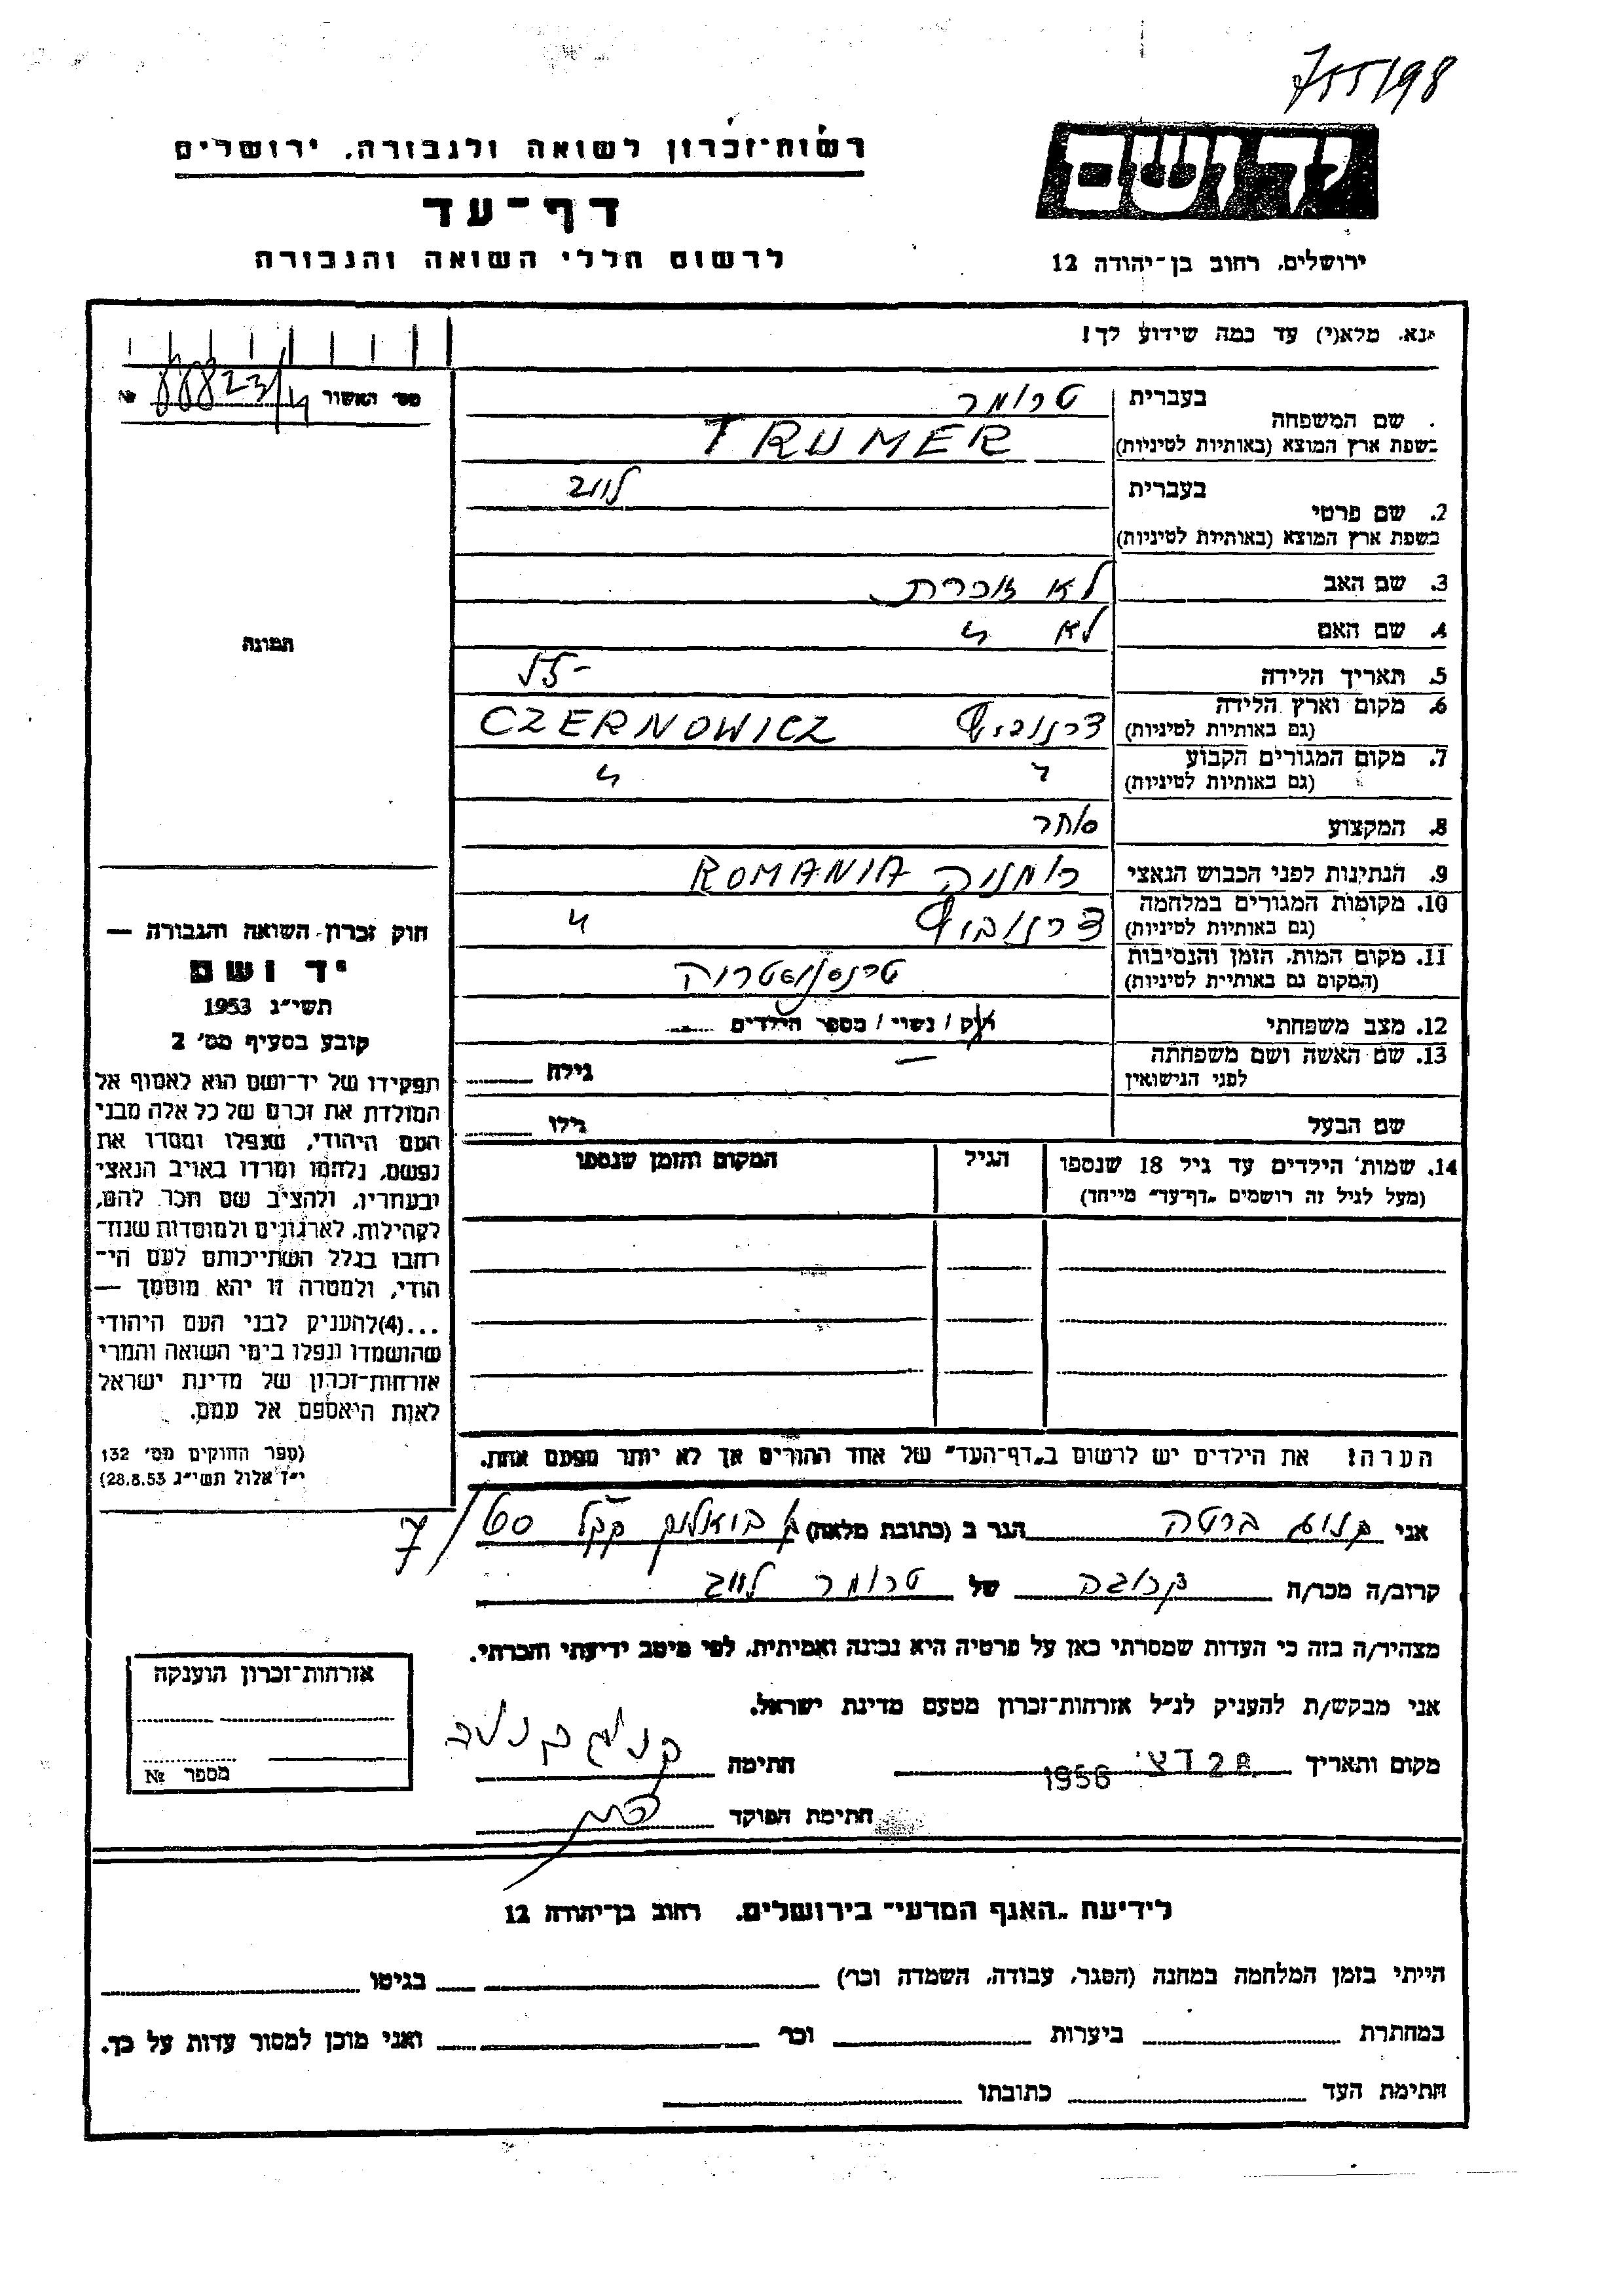 755/98
רשות־זכרון לשואה ולגבורה, ירושלים
יד ושם
דף־עד
לרשום חללי השואה והגבורה
ירושלים, רחוב בן־יהודה 12
נא, מלא(י) עד כמה שידוע לך!
מס׳ האשור №
שם המשפחה
בעברית
טרומר
בשפת ארץ המוצא (באותיות לטיניות)
TRUMER
2. שם פרטי
בעברית
לייב
בשפת ארץ המוצא (באותיות לטיניות)
3. שם האב לא זוכרת
4. שם האם לא "
תמונה
5. תאריך הלידה
6. מקום וארץ הלידה צרנוביץ CZERNOWICZ
(גם באותיות לטיניות)
7. מקום המגורים הקבוע " "
(גם באותיות לטיניות)
8. המקצוע סוחר
9. הנתינות לפני הכבוש הנאצי רומניה ROMANIA
10. מקומות המגורים במלחמה צרנוביץ "
(גם באותיות לטיניות)
11. מקום המות, הזמן והנסיבות טרנסניסטריה
(המקום גם באותיית לטיניות)
12. מצב משפחתי רוק / נשוי / מספר הילדים
13. שם האשה ושם משפחתה
לפני הנישואין
גילה
שם הבעל גילו
14. שמות הילדים עד גיל 18 שנספו
(מעל לגיל זה רושמים „דף־עד" מייחד)
הגיל
המקום והזמן שנספו
חוק זכרון השואה והגבורה —
יד ושם
תשי״ג 1953
קובע בסעיף מס׳ 2
תפקידו של יד־ושם הוא לאסוף אל
המולדת את זכרם של כל אלה מבני
העם היהודי, שנפלו ומסרו את
נפשם, נלחמו ומרדו באויב הנאצי
ובעוזריו, ולהציב שם וזכר להם,
לקהילות, לארגונים ולמוסדות שנח־
רבו בגלל השתייכותם לעם הי־
הודי, ולמטרה זו יהא מוסמך —
...(4) להעניק לבני העם היהודי
שהושמדו ונפלו בימי השואה והמרי
אזרחות־זכרון של מדינת ישראל
לאות היאספם אל עמם.
(ספר החוקים מס׳ 132
י״ד אלול תשי״ג 28.8.53)
הערה! את הילדים יש לרשום ב„דף־העד" של אחד ההורים אך לא יותר מפעם אחת.
אני ברטה הגר ב (כתובת מלאה)
קרוב/ה מכר/ה קרובה של טרומר לייב
מצהיר/ה בזה כי העדות שמסרתי כאן על פרטיה היא נכונה ואמיתית, לפי מיטב ידיעתי והכרתי.
אני מבקש/ת להעניק לנ״ל אזרחות־זכרון מטעם מדינת ישראל.
מקום ותאריך 28 דצ׳ 1956 חתימה
חתימת הפוקד
אזרחות־זכרון הוענקה
מספר №
לידיעת „האגף המדעי" בירושלים, רחוב בן־יהודה 12
הייתי בזמן המלחמה במחנה (הסגר, עבודה, השמדה וכו׳) בגיטו
במחתרת ביערות וכו׳ ואני מוכן למסור עדות על כך.
חתימת העד כתובתו